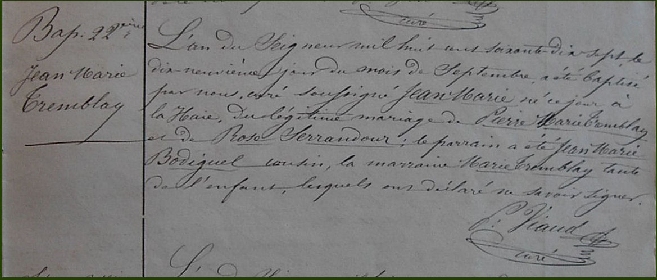 curé
Bap. 22ième
Jean Marie
Tremblay
L'an du Seigneur mil huit cens soixante dix sept, le
dix-neuvième jour du mois de Septembre, a été baptisé
par nous, curé soussigné Jean Marie, né ce jour à
la Haie, du légitime mariage de Pierre Marie Tremblay
et de Rose Serrandour; le parrain a été Jean Marie
Bodiguel cousin, la marraine Marie Tremblay tante
de l'enfant, lesquels ont déclaré ne savoir signer.
P. Viaud
curé